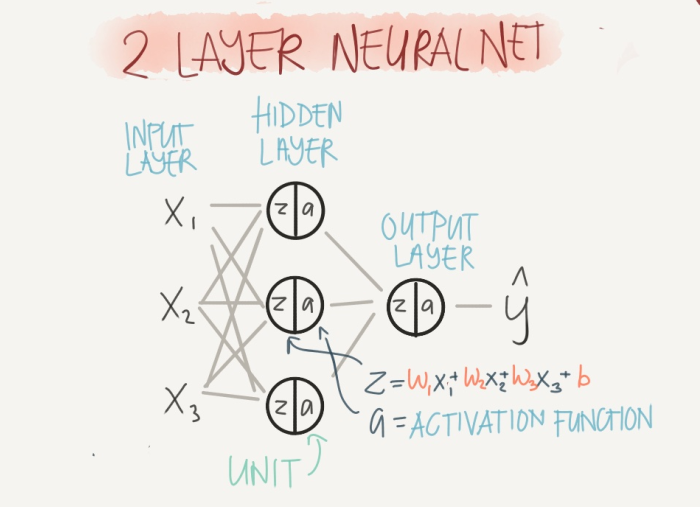 2 LAYER NEURAL NET
INPUT
LAYER
HIDDEN
LAYER
OUTPUT
LAYER
X₁
z a
X₂
z a
z a
ŷ
X₃
z a
Z = W₁X₁ + W₂X₂ + W₃X₃ + b
a = ACTIVATION FUNCTION
UNIT